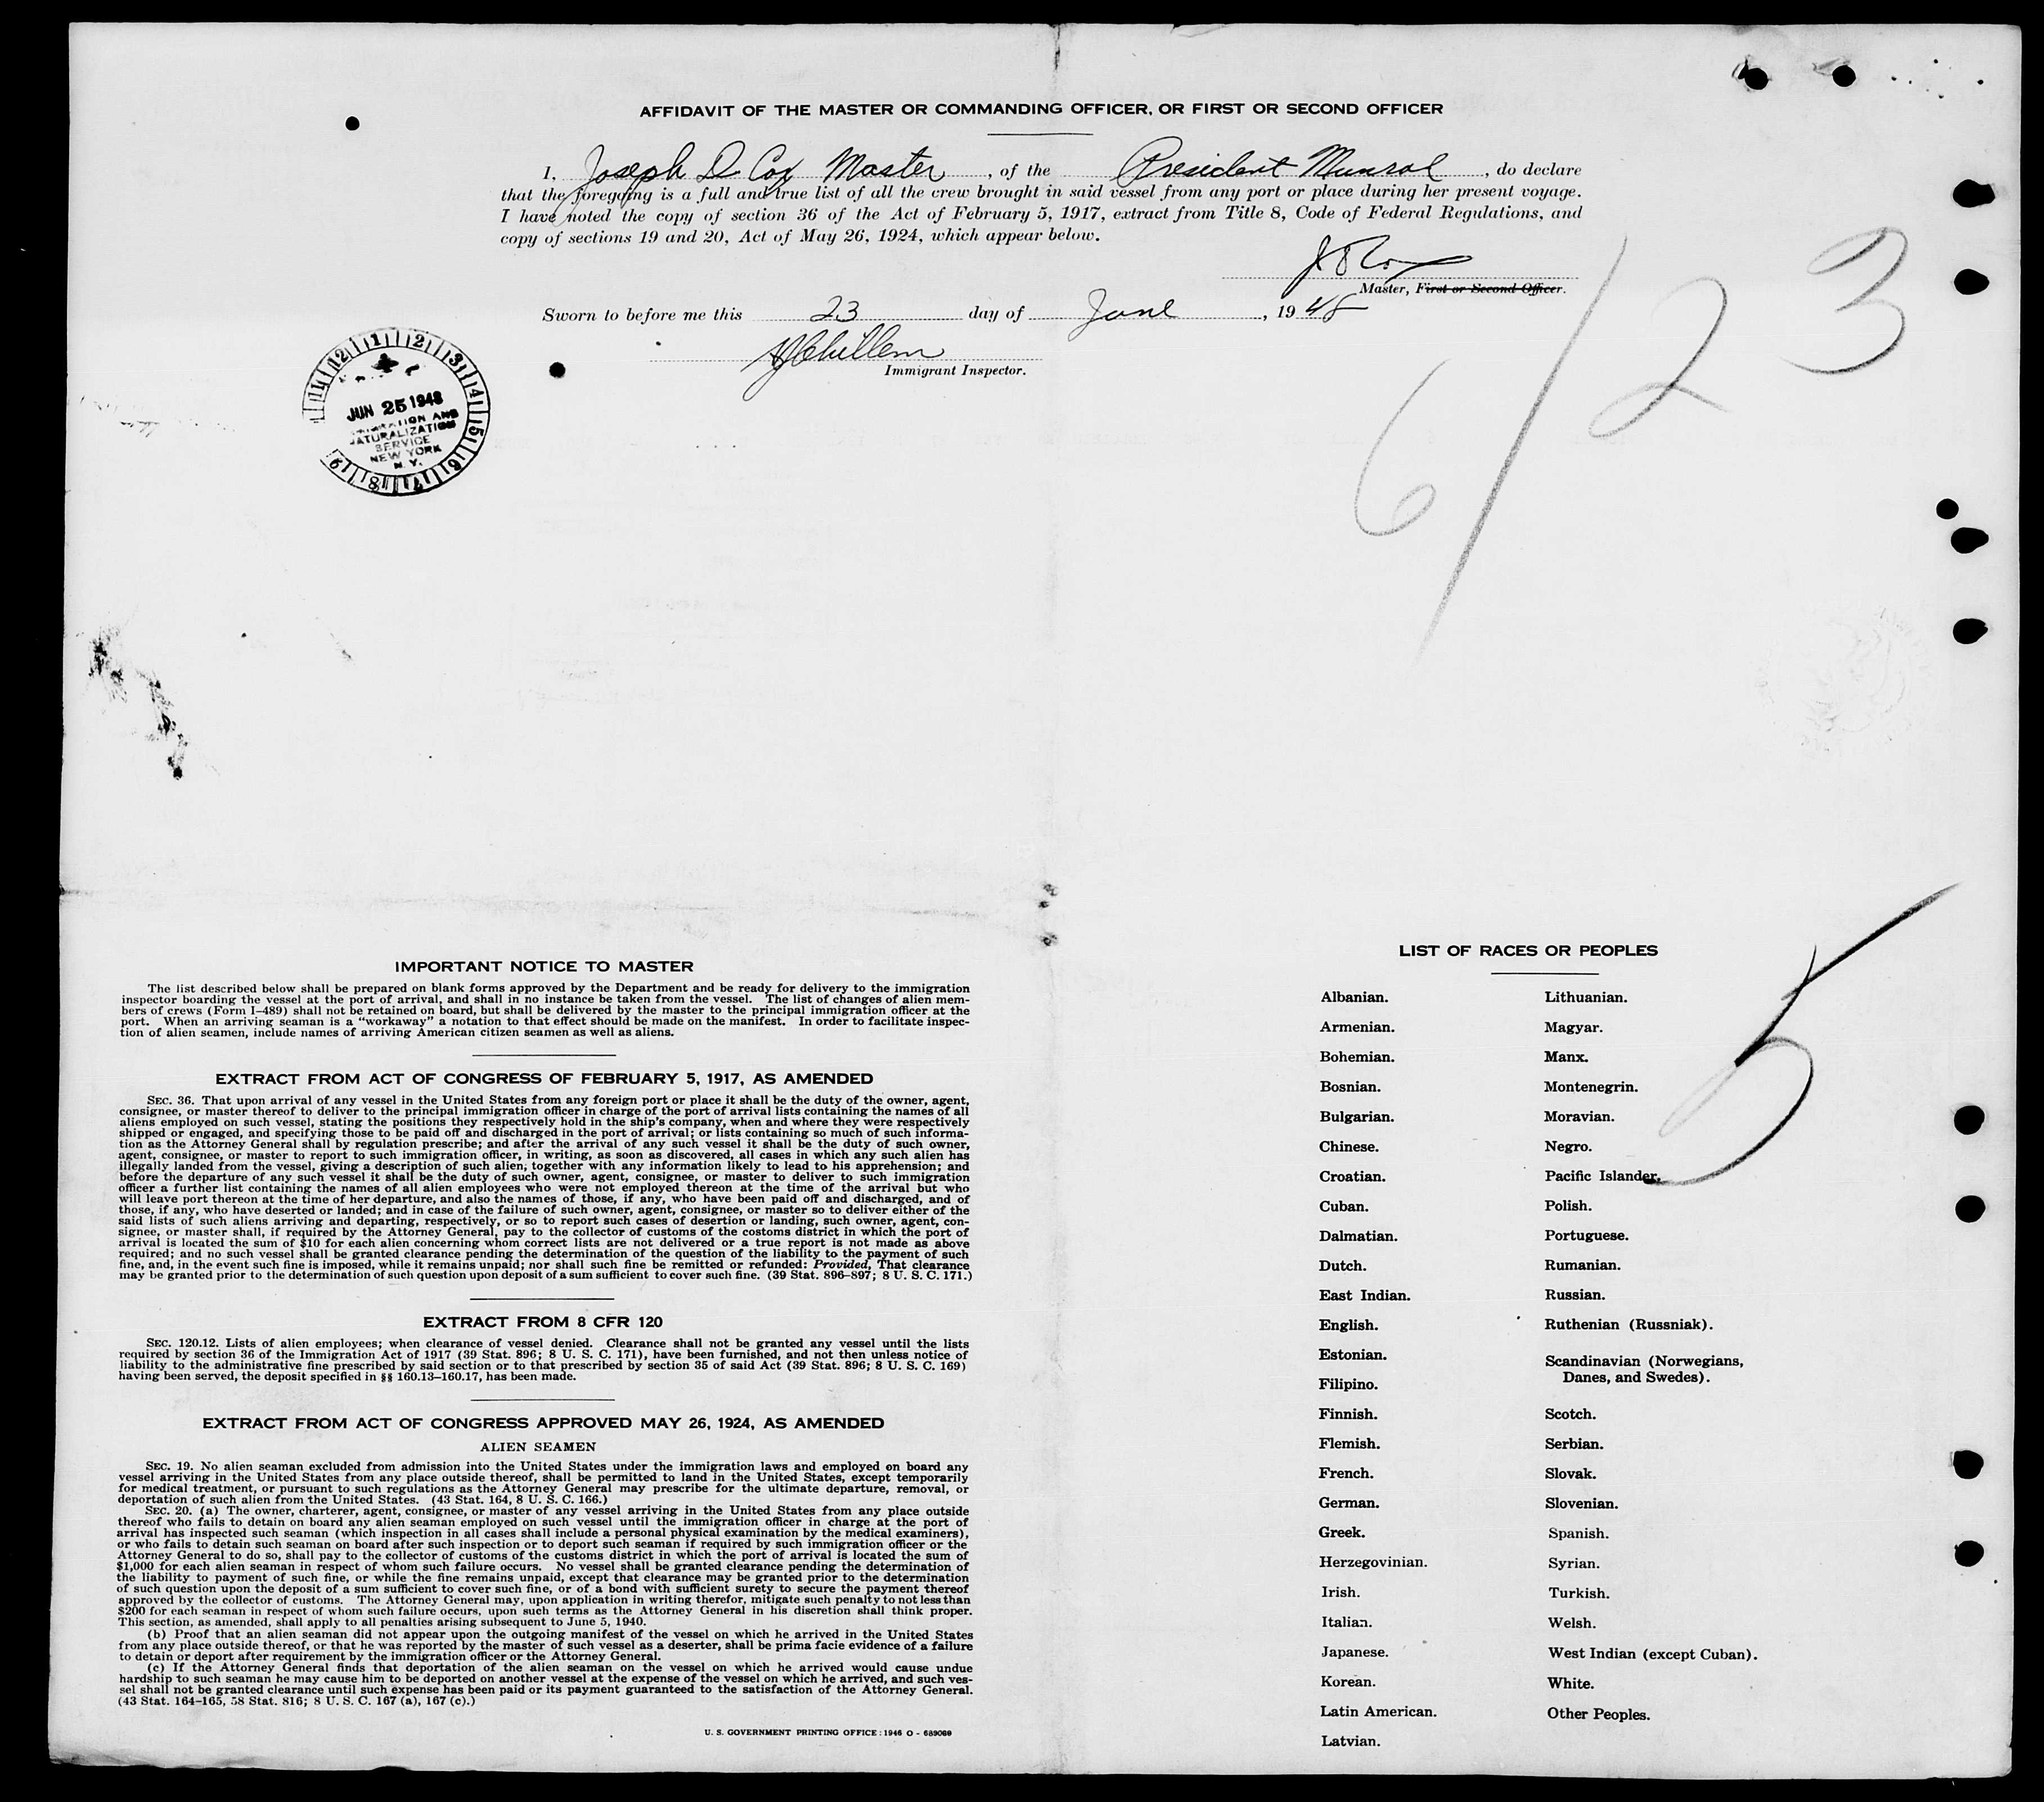 AFFIDAVIT OF THE MASTER OR COMMANDING OFFICER, OR FIRST OR SECOND OFFICER
I, Joseph D Cox Master , of the President Munroe , do declare
that the foregoing is a full and true list of all the crew brought in said vessel from any port or place during her present voyage.
I have noted the copy of section 36 of the Act of February 5, 1917, extract from Title 8, Code of Federal Regulations, and
copy of sections 19 and 20, Act of May 26, 1924, which appear below.
J D Cox
Master, First or Second Officer.
Sworn to before me this 23 day of June , 19 48
Immigrant Inspector.
12 1 2 3 4 5 6 7 8
JUN 25 1948
NATURALIZATION
SERVICE
NEW YORK
N. Y.
6/23
IMPORTANT NOTICE TO MASTER
The list described below shall be prepared on blank forms approved by the Department and be ready for delivery to the immigration
inspector boarding the vessel at the port of arrival, and shall in no instance be taken from the vessel. The list of changes of alien mem-
bers of crews (Form I-489) shall not be retained on board, but shall be delivered by the master to the principal immigration officer at the
port. When an arriving seaman is a "workaway" a notation to that effect should be made on the manifest. In order to facilitate inspec-
tion of alien seamen, include names of arriving American citizen seamen as well as aliens.
EXTRACT FROM ACT OF CONGRESS OF FEBRUARY 5, 1917, AS AMENDED
SEC. 36. That upon arrival of any vessel in the United States from any foreign port or place it shall be the duty of the owner, agent,
consignee, or master thereof to deliver to the principal immigration officer in charge of the port of arrival lists containing the names of all
aliens employed on such vessel, stating the positions they respectively hold in the ship's company, when and where they were respectively
shipped or engaged, and specifying those to be paid off and discharged in the port of arrival; or lists containing so much of such informa-
tion as the Attorney General shall by regulation prescribe; and after the arrival of any such vessel it shall be the duty of such owner,
agent, consignee, or master to report to such immigration officer, in writing, as soon as discovered, all cases in which any such alien has
illegally landed from the vessel, giving a description of such alien, together with any information likely to lead to his apprehension; and
before the departure of any such vessel it shall be the duty of such owner, agent, consignee, or master to deliver to such immigration
officer a further list containing the names of all alien employees who were not employed thereon at the time of the arrival but who
will leave port thereon at the time of her departure, and also the names of those, if any, who have been paid off and discharged, and of
those, if any, who have deserted or landed; and in case of the failure of such owner, agent, consignee, or master so to deliver either of the
said lists of such aliens arriving and departing, respectively, or so to report such cases of desertion or landing, such owner, agent, con-
signee, or master shall, if required by the Attorney General, pay to the collector of customs of the costoms district in which the port of
arrival is located the sum of $10 for each alien concerning whom correct lists are not delivered or a true report is not made as above
required; and no such vessel shall be granted clearance pending the determination of the question of the liability to the payment of such
fine, and, in the event such fine is imposed, while it remains unpaid; nor shall such fine be remitted or refunded: Provided, That clearance
may be granted prior to the determination of such question upon deposit of a sum sufficient to cover such fine. (39 Stat. 896-897; 8 U. S. C. 171.)
EXTRACT FROM 8 CFR 120
SEC. 120.12. Lists of alien employees; when clearance of vessel denied. Clearance shall not be granted any vessel until the lists
required by section 36 of the Immigration Act of 1917 (39 Stat. 896; 8 U. S. C. 171), have been furnished, and not then unless notice of
liability to the administrative fine prescribed by said section or to that prescribed by section 35 of said Act (39 Stat. 896; 8 U. S. C. 169)
having been served, the deposit specified in §§ 160.13-160.17, has been made.
EXTRACT FROM ACT OF CONGRESS APPROVED MAY 26, 1924, AS AMENDED
ALIEN SEAMEN
SEC. 19. No alien seaman excluded from admission into the United States under the immigration laws and employed on board any
vessel arriving in the United States from any place outside thereof, shall be permitted to land in the United States, except temporarily
for medical treatment, or pursuant to such regulations as the Attorney General may prescribe for the ultimate departure, removal, or
deportation of such alien from the United States. (43 Stat. 164, 8 U. S. C. 166.)
SEC. 20. (a) The owner, charterer, agent, consignee, or master of any vessel arriving in the United States from any place outside
thereof who fails to detain on board any alien seaman employed on such vessel until the immigration officer in charge at the port of
arrival has inspected such seaman (which inspection in all cases shall include a personal physical examination by the medical examiners),
or who fails to detain such seaman on board after such inspection or to deport such seaman if required by such immigration officer or the
Attorney General to do so, shall pay to the collector of customs of the customs district in which the port of arrival is located the sum of
$1,000 for each alien seaman in respect of whom such failure occurs. No vessel shall be granted clearance pending the determination of
the liability to payment of such fine, or while the fine remains unpaid, except that clearance may be granted prior to the determination
of such question upon the deposit of a sum sufficient to cover such fine, or of a bond with sufficient surety to secure the payment thereof
approved by the collector of customs. The Attorney General may, upon application in writing therefor, mitigate such penalty to not less than
$200 for each seaman in respect of whom such failure occurs, upon such terms as the Attorney General in his discretion shall think proper.
This section, as amended, shall apply to all penalties arising subsequent to June 5, 1940.
(b) Proof that an alien seaman did not appear upon the outgoing manifest of the vessel on which he arrived in the United States
from any place outside thereof, or that he was reported by the master of such vessel as a deserter, shall be prima facie evidence of a failure
to detain or deport after requirement by the immigration officer or the Attorney General.
(c) If the Attorney General finds that deportation of the alien seaman on the vessel on which he arrived would cause undue
hardship to such seaman he may cause him to be deported on another vessel at the expense of the vessel on which he arrived, and such ves-
sel shall not be granted clearance until such expense has been paid or its payment guaranteed to the satisfaction of the Attorney General.
(43 Stat. 164-165, 58 Stat. 816; 8 U. S. C. 167 (a), 167 (c).)
U. S. GOVERNMENT PRINTING OFFICE : 1946 O - 689060
LIST OF RACES OR PEOPLES
Albanian.
Armenian.
Bohemian.
Bosnian.
Bulgarian.
Chinese.
Croatian.
Cuban.
Dalmatian.
Dutch.
East Indian.
English.
Estonian.
Filipino.
Finnish.
Flemish.
French.
German.
Greek.
Herzegovinian.
Irish.
Italian.
Japanese.
Korean.
Latin American.
Latvian.
Lithuanian.
Magyar.
Manx.
Montenegrin.
Moravian.
Negro.
Pacific Islander.
Polish.
Portuguese.
Rumanian.
Russian.
Ruthenian (Russniak).
Scandinavian (Norwegians,
Danes, and Swedes).
Scotch.
Serbian.
Slovak.
Slovenian.
Spanish.
Syrian.
Turkish.
Welsh.
West Indian (except Cuban).
White.
Other Peoples.
5